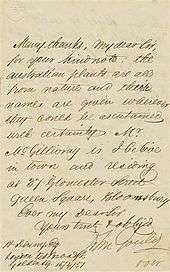 Many thanks, my dear Sir,
for your kind note. the
australian plants are all
from nature and their
names are given wherever
they could be ascertained
with certainty. Mr
McGillivray is I believe
in town and residing
at 27 Gloucester Street
Queen Square, Bloomsbury
Ever my dear Sir
Yours truly
John Gould